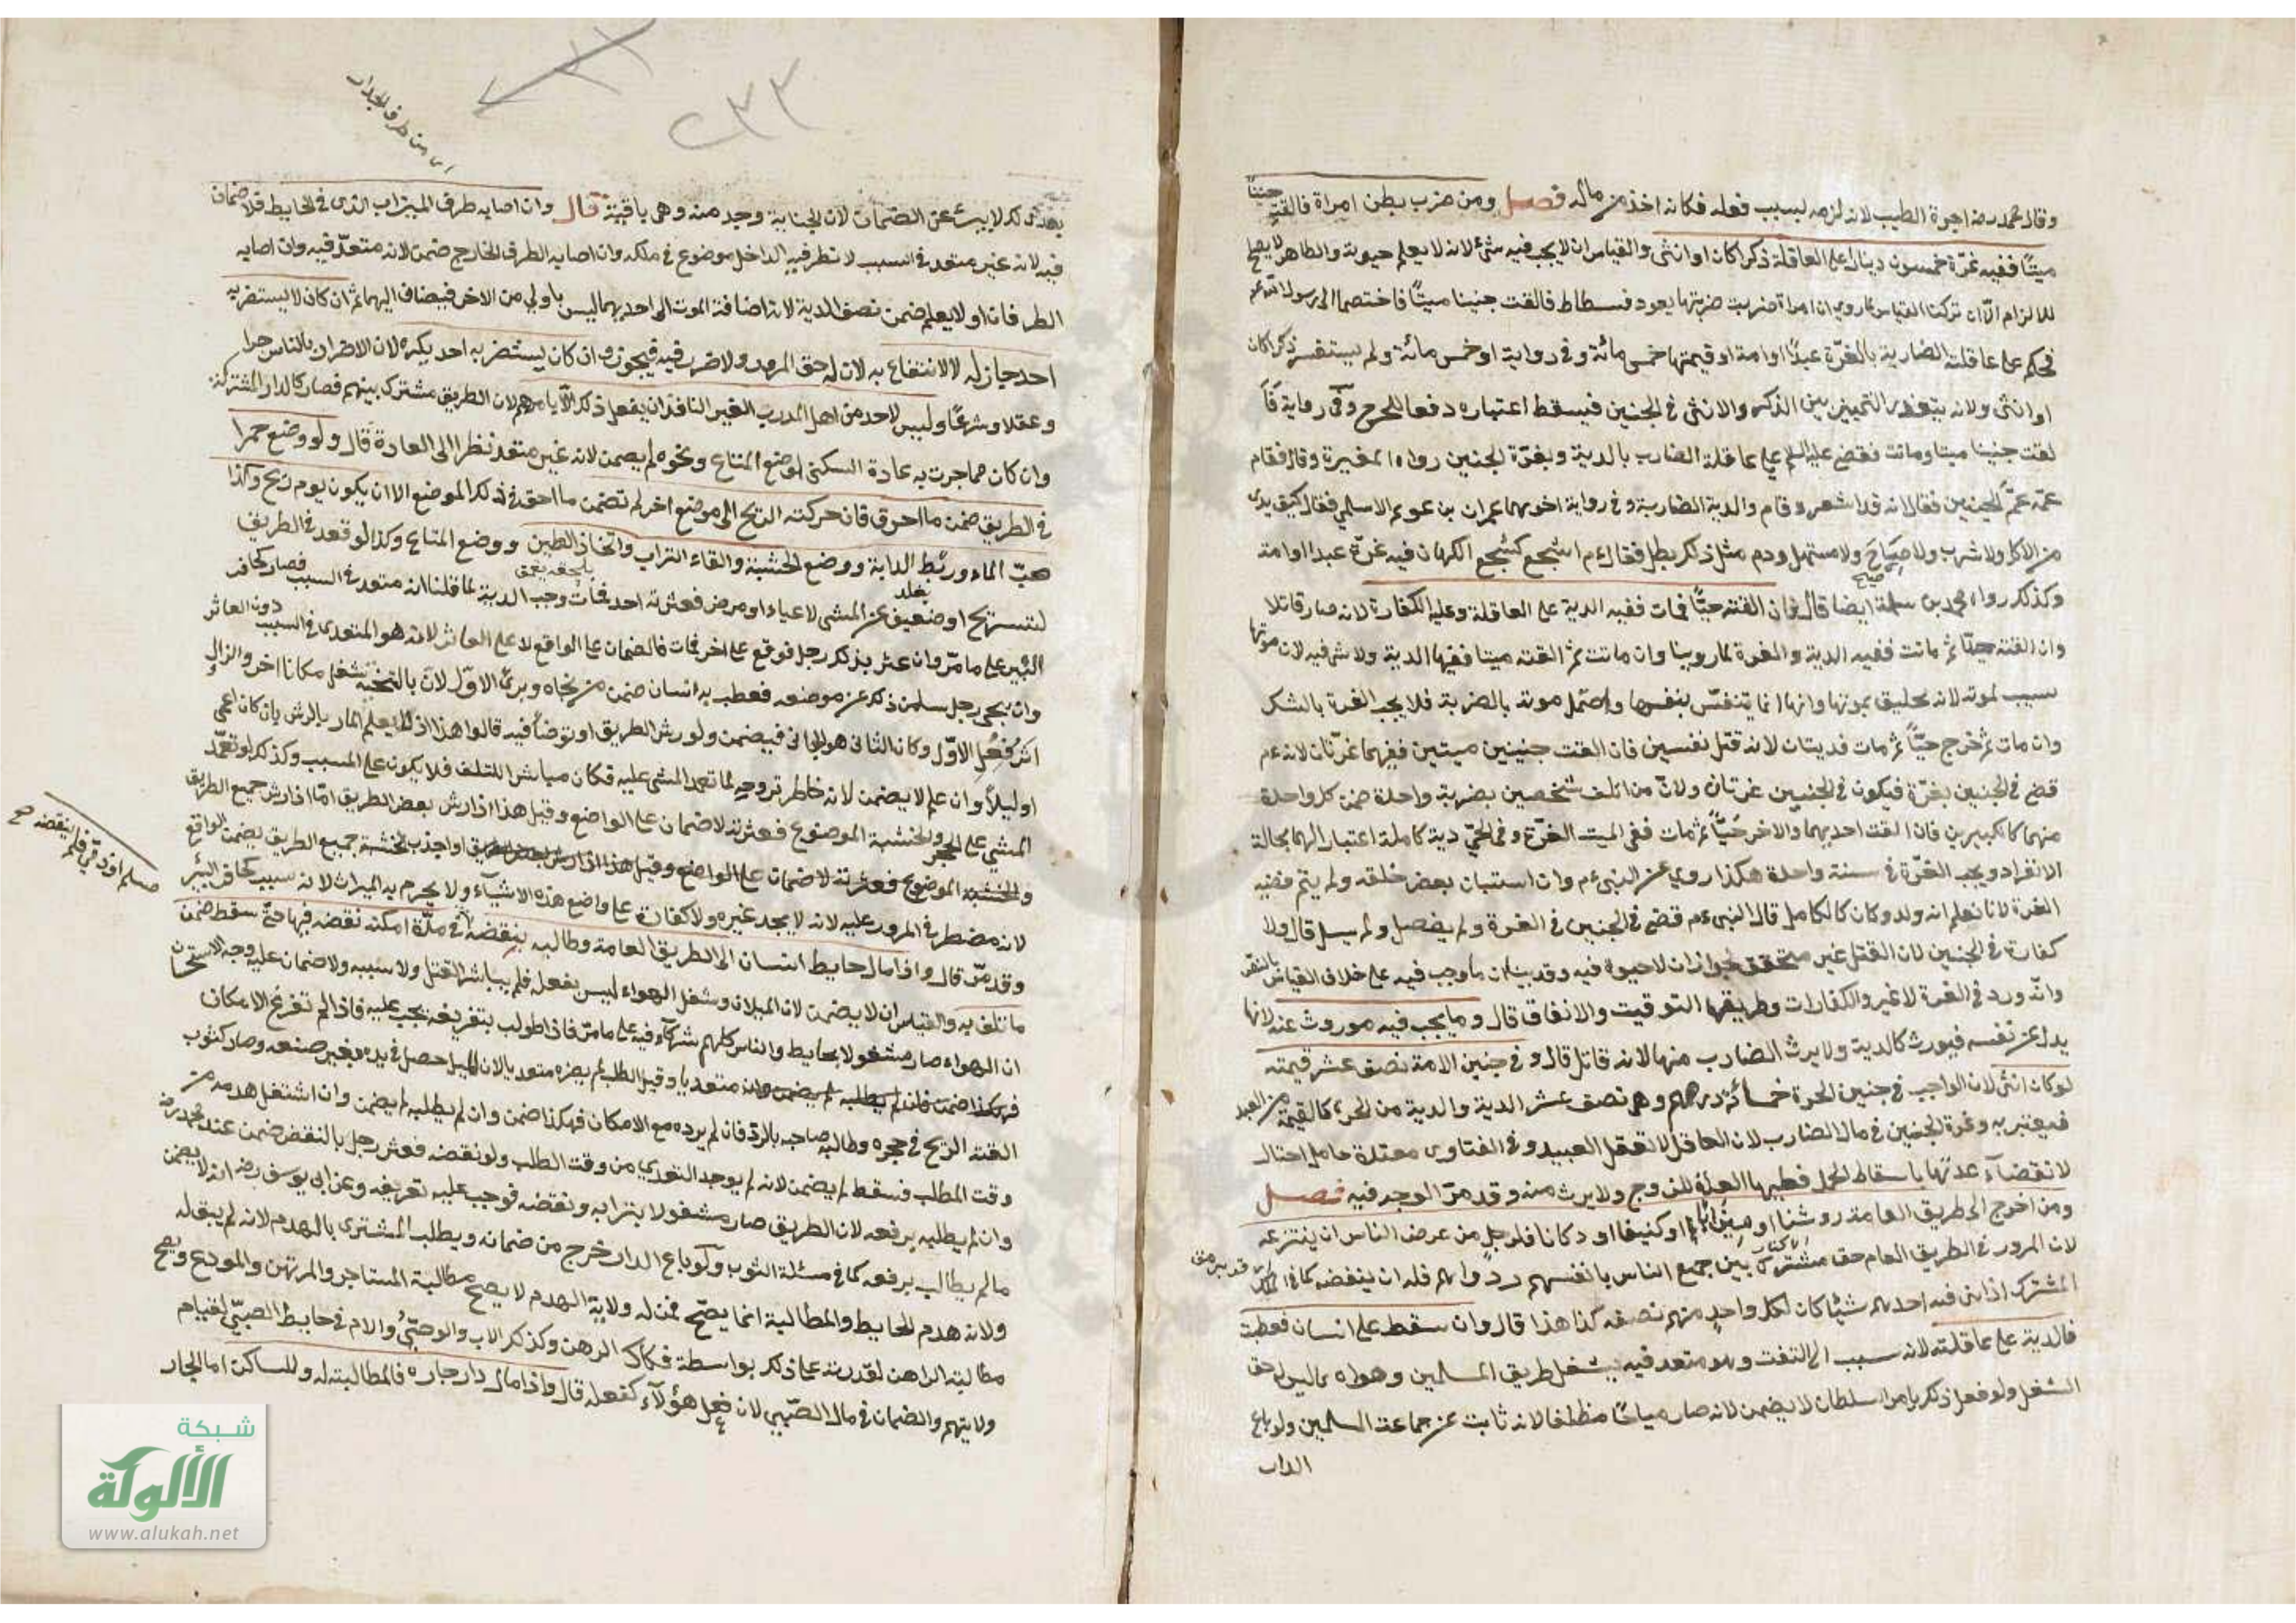 وقال محمد رضه اجرة الطبيب لانه لزمه بسبب فعله فكانه اخذ من ماله فصل ومن ضرب بطن امراة فالقت جنينا
ميتا ففيه غرة خمسون دينارا على العاقلة ذكرا كان او انثى والقياس ان لا يجب فيه شئ لانه لا يعلم حيوته والظاهر لا يصلح
للالزام الا ان تركنا القياس لما روى ان امراة ضربت ضرتها بعود فسطاط فالقت جنينا ميتا فاختصما الى رسول الله عم
فحكم على عاقلة الضاربة بالغرة عبدا او امة او قيمتها خمس مائة وفى رواية او خمس مائة ولم يستفسر ذكرا كان
او انثى ولانه يتعذر التمييز بين الذكر والانثى فى الجنين فيسقط اعتباره دفعا للحرج وفى رواية فا
لقت جنينا ميتا وماتت فقضى عليه السلم على عاقلة الضارب بالدية وبغرة الجنين رواه المغيرة وقال فقام
عمّ الجنين فقال انه قد اشعر وقام والد الضاربة وفى رواية اخوهما عمران بن عويم الاسلمى فقال كيف يدى
من لا اكل ولا شرب ولا صاح ولا استهل ودم مثل ذلك بطل فقال عم اسجع كسجع الكهان فيه غرة عبد او امة
وكذلك رواه محمد بن سلمة ايضا قال فان القته حيّا فمات ففيه الدية على العاقلة وعليه الكفارة لانه صار قاتلا
وان القته ميتا ثم ماتت ففيه الدية والغرة لما روينا وان ماتت ثم القته ميتا ففيها الدية ولا شئ فيه لان موتها
سبب لموته لانه يختنق بموتها وانها انما يتنفس بنفسها واحتمل موته بالضربة فلا يجب الغرة بالشك
وان مات ثم خرج حيّا ثم مات فديتان لانه قتل نفسين فان القت جنينين ميتين ففيهما غرتان لانه عم
قضى فى الجنين بغرة فيكون فى الجنينين غرتان ولان من اتلف شخصين بضربة واحدة ضمن كل واحدة
منهما كالكبيرين فان القت احديهما والاخر حيّا ثم مات ففى الميت الغرة وفى الحىّ دية كاملة اعتبارا لهما بحالة
الانفراد ويجب الغرّة فى سنة واحدة هكذا روى عن النبى عم وان استبان بعض خلقه ولم يتم ففيه
الغرة لانا نعلم انه ولد وكان كالكامل قال النبى عم قضى فى الجنين فى الغرة ولم يفصل ولم يسل قال ولا
كفارة فى الجنين لان القتل غير متحقق لجواز ان لا حيوة فيه وقد بينا ان ما وجب فيه على خلاف القياس بالنص
وانه ورد فى الغرة لا غير والكفارات طريقها التوقيت والاتفاق قال وما يجب فيه موروث عنه لانها
بدل عن نفسه فيورث كالدية ولا يرث الضارب منها لانه قاتل قال وفى جنين الامة نصف عشر قيمته
لو كان انثى لان الواجب فى جنين الحرة خمسمائة درهم وهو نصف عشر الدية والدية من الحر كالقيمة من العبد
فيعتبر به وغرة الجنين فى مال الضارب لان العاقل لا تعقل العبيد وفى الفتاوى معتدة حامل احتال
لانقضاء عدتها باسقاط الحمل فعليها الغرة للزوج ولا يرث منه وقد مرّ الوجه فيه فصل
ومن اخرج الى طريق العامة روشنا او ميزابا او كنيفا او دكانا فلرجل من عرض الناس ان ينتزعه
لان المرور فى الطريق العام حق مشترك بين جميع الناس بانفسهم ودوابهم فله ان ينقضه كما فى الملك
المشترك اذا بنى فيه احدهم شيئا كان لكل واحد منهم نصفه كذا هذا قال وان سقط على انسان فعطب
فالدية على عاقلته لانه سبب الى التلف وهو متعد فيه بشغل طريق المسلمين وهواه بما ليس له حق
الشغل ولو فعل ذلك بامر السلطان لا يضمن لانه صار مباحا مطلقا لانه نائب عن جماعة المسلمين ولو باع
الدار
بعد ذلك لا يبرئ عن الضمان لان الجناية وجد منه وهى باقية قال وان اصابه طرف الميزاب الذى فى الحايط فلا ضمان
فيه لانه غير متعد فى السبب لا تظر فيه الداخل موضوع فى ملكه وان اصابه الطرف الخارج ضمن لانه متعدّ فيه وان اصابه
الطرفان او لا يعلم ضمن نصف الدية لان اضافة الموت الى احديهما ليس باولى من الاخر فيضاف اليهما ثم ان كان لا يستضر به
احد جاز له الانتفاع به لان له حق المرور ولا ضرر فيه فيجوز وان كان يستضر به احد يكره لان الاضرار بالناس حرام
وعقلا وشرعا وليس لاحد من اهل الدرب الغير النافذ ان يفعل ذلك الا بامرهم لان الطريق مشترك بينهم فصار كالدار المشتركة
وان كان مما جرت به عادة السكنى لوضع المتاع ونحوه لم يضمن لانه غير متعد نظرا الى العادة قال ولو وضع جمرا
فى الطريق ضمن ما احرق فان حركته الريح الى موضع اخر لم تضمن ما احرق فى ذلك الموضع الا ان يكون يوم ريح وكذا
صبّ الماء وربط الدابة ووضع الخشبة والقاء التراب واتخاذ الطين ووضع المتاع وكذا لو قعد فى الطريق
لتستريح او ضعيف عن المشى لاعياء او مرض فعثر به احد فمات وجب الدية لما قلنا انه متعد فى السبب فصار كحافر
البئر على ما مرّ وان عثر بذلك رجل فوقع على اخر فمات فالضمان على الواقع لا على العاثر لانه هو المتعدى فى السبب دون العاثر
وان نحى رجل سلم من ذلك عن موضعه فعطب به انسان ضمن من نحاه وبرئ الاوّل لان بالتنحية شغل مكانا اخر والزال
اثر فعل الاوّل وكان الثانى هو الجانى فيضمن ولو رش الطريق او توضأ فيه قالوا هذا اذا لم يعلم المار بالرش بان كان اعمى
او ليلا وان علم لا يضمن لانه خاطر بروحه لما تعمد المشى عليه فكان مباشرا للتلف فلا يكون على المسبب وكذلك لو تعمّد
المشى على الحجر والخشبة الموضوع فعثر به لا ضمان على الواضع وقيل هذا اذا رش بعض الطريق امّا اذا رش جميع الطريق
والخشبة الموضوع فعثر به لا ضمان على الواضع وقيل هذا اذا رش بعض الطريق او اخذت الخشبة جميع الطريق يضمن الواقع
لانه مضطر فى المرور عليه لانه لا يجد غيره ولا كفارة على واضع هذه الاشياء ولا يحرم به الميراث لانه سبب كحافر البئر
وقد مرّ قال واذا مال حايط انسان الى الطريق العامة وطالبه بنقضه فى مدّة امكنه نقضه فيها حتى سقط ضمن
ما تلف به والقياس ان لا يضمن لان الميلان وشغل الهواء ليس بفعله فلم يباشر القتل ولا سببه ولا ضمان عليه وجه الاستحسان
ان الهواء صار مشغولا بحايط والناس كلهم شركاء فيه على ما مرّ فاذا طولب بتفريغه يجب عليه فاذا لم تفرغ الامكان
فهكذا ضمن فان لم يطلبه لم يضمن وانه متعديا وقبل الطلب لم يصره متعديا لان الميل حصل فى يده بغير صنعه وصار كثوب
القته الريح فى حجره وطالبه صاحبه بالردّ فان لم يرده مع الامكان فهكذا ضمن وان لم يطلبه لم يضمن وان اشتغل هدمه من
وقت الطلب فسقط لم يضمن لانه لم يوجد التعدى من وقت الطلب ولو نقضه فعثر رجل بالنقض ضمن عند محمد رضه
وان لم يطلبه برفعه لان الطريق صار مشغولا بترابه ونقضه فوجب عليه تفريغه وعن ابى يوسف رضه انه لا يضمن
ما لم يطالب برفعه كما فى مسئلة الثوب ولو باع الدار خرج من ضمانه ويطلب المشترى بالهدم لانه لم يبق له
ولانه هدم الحايط والمطالبة انما يصحّ فمن له ولاية الهدم لا يصح مطالبة المستاجر والمرتهن والمودع ويصح
مطالبة الراهن لقدرته على ذلك بواسطة فكاك الرهن وكذلك الاب والوصىّ والام فى حايط الصبىّ لقيام
ولايتهم والضمان فى مال الصبى لان فعل هؤلاء كفعله قال واذا مال دار جاره فالمطالبة له وللساكن اما الجار
مسلم او ذمى فلم ينقضه صح
اى من طرف الجدار
٢٣٣
شبكة
الألوكة
www.alukah.net